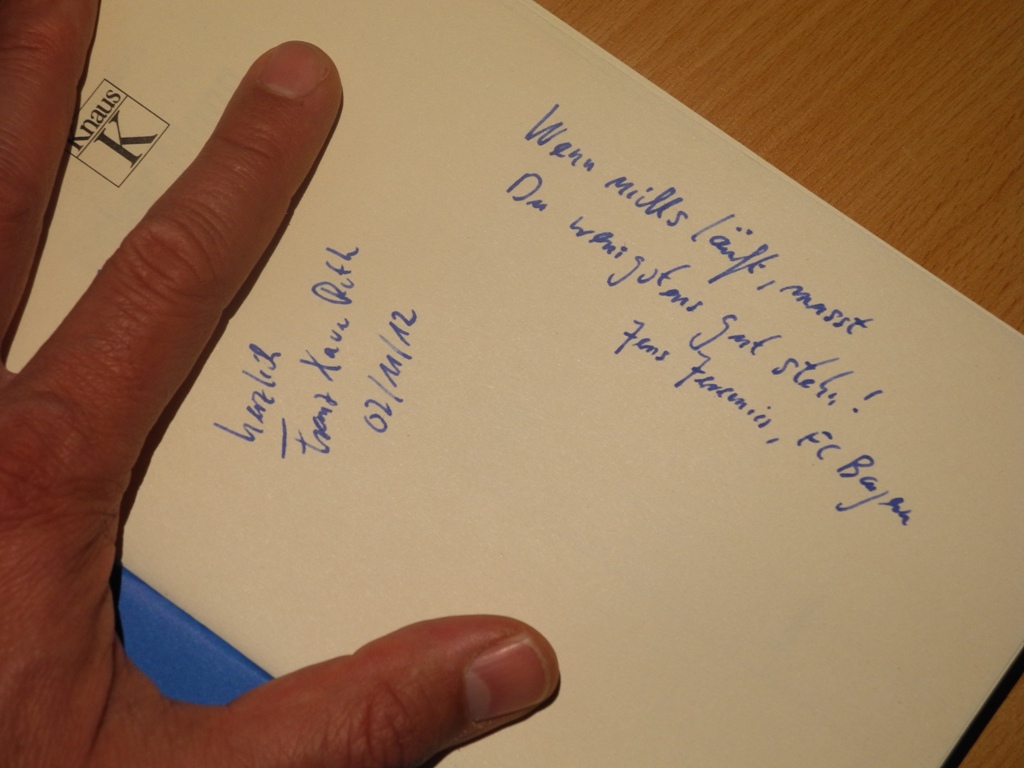 Knaus
K
Wenn nichts läuft, musst
Du wenigstens gut stehn!
Jens Jeremies, FC Bayern
herzlich
Franz Xaver Roth
02/11/12